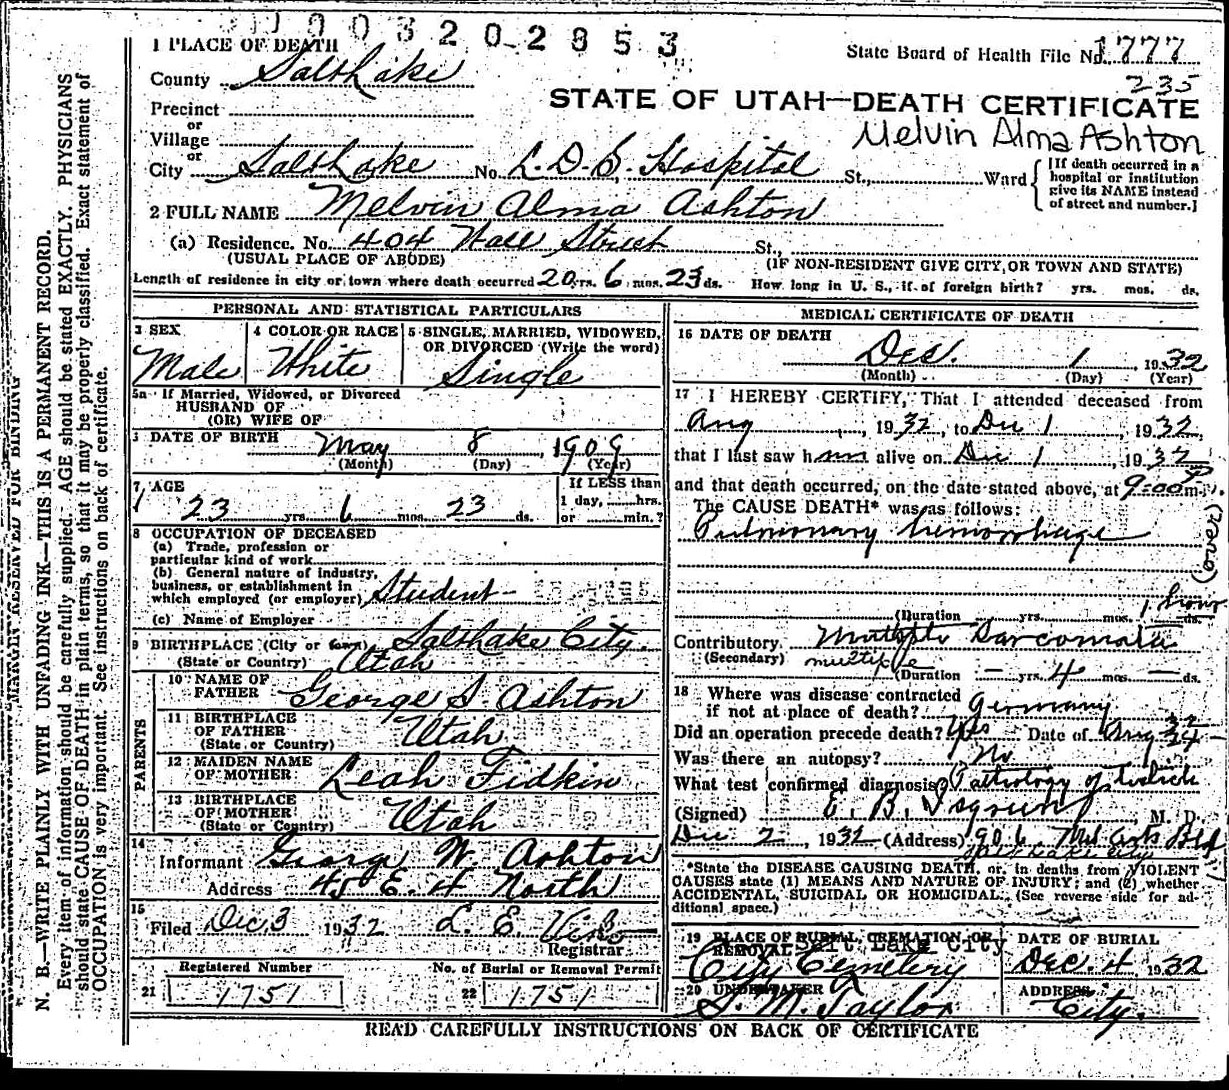 00320 2853
1 PLACE OF DEATH
State Board of Health File No. 1777
235
County Salt Lake
STATE OF UTAH—DEATH CERTIFICATE
Precinct
or
Village
or
Melvin Alma Ashton
City Salt Lake No. L. D. S. Hospital St., Ward
[If death occurred in a hospital or institution give its NAME instead of street and number.]
2 FULL NAME Melvin Alma Ashton
(a) Residence. No. 404 Wall Street St.,
(USUAL PLACE OF ABODE) (IF NON-RESIDENT GIVE CITY, OR TOWN AND STATE)
Length of residence in city or town where death occurred 20 yrs. 6 mos. 23 ds. How long in U. S., if of foreign birth? yrs. mos. ds.
PERSONAL AND STATISTICAL PARTICULARS
3 SEX
Male
4 COLOR OR RACE
White
5 SINGLE, MARRIED, WIDOWED, OR DIVORCED (Write the word)
Single
5a If Married, Widowed, or Divorced
HUSBAND OF
(OR) WIFE OF
DATE OF BIRTH May 8, 1909
(Month) (Day) (Year)
7 AGE
23 yrs. 6 mos. 23 ds.
If LESS than
1 day, hrs.
or min.?
8 OCCUPATION OF DECEASED
(a) Trade, profession or
particular kind of work
(b) General nature of industry,
business, or establishment in
which employed (or employer) Student
(c) Name of Employer
9 BIRTHPLACE (City or town) Salt Lake City.
(State or Country) Utah
PARENTS
10 NAME OF FATHER George S. Ashton
11 BIRTHPLACE OF FATHER (State or Country) Utah
12 MAIDEN NAME OF MOTHER Leah Fidkin
13 BIRTHPLACE OF MOTHER (State or Country) Utah
14 Informant George W. Ashton
Address 45 E. 4 North
15 Filed Dec 3 1932 L. E.
Registrar
Registered Number
21 1751
No. of Burial or Removal Permit
22 1751
MEDICAL CERTIFICATE OF DEATH
16 DATE OF DEATH
Dec. 1, 1932
(Month) (Day) (Year)
17 I HEREBY CERTIFY, That I attended deceased from
Aug, 1932, to Dec 1, 1932,
that I last saw him alive on Dec 1, 1932
and that death occurred, on the date stated above, at 9:00 P m.
The CAUSE DEATH* was as follows:
Pulmonary hemorrhage
(over)
1 hour
(Duration yrs. mos. ds.
Contributory Multiple Sarcomata
(Secondary) multiple
(Duration — yrs. 4 mos — ds.
18 Where was disease contracted
if not at place of death? Germany
Did an operation precede death? Yes Date of Aug 32
Was there an autopsy? No
What test confirmed diagnosis? Pathology of
(Signed) E. B., M. D.
Dec 2, 1932 (Address) 906 Med Arts Bld
Salt Lake City
*State the DISEASE CAUSING DEATH, or, in deaths from VIOLENT
CAUSES state (1) MEANS AND NATURE OF INJURY; and (2) whether
ACCIDENTAL, SUICIDAL OR HOMICIDAL. (See reverse side for additional space.)
19 PLACE OF BURIAL, CREMATION OR REMOVAL
Salt Lake City
City Cemetery
DATE OF BURIAL
Dec. 4 1932
20 UNDERTAKER
S. M. Taylor
ADDRESS
City.
READ CAREFULLY INSTRUCTIONS ON BACK OF CERTIFICATE
MARGIN RESERVED FOR BINDING
N. B.—WRITE PLAINLY WITH UNFADING INK—THIS IS A PERMANENT RECORD.
Every item of information should be carefully supplied. AGE should be stated EXACTLY. PHYSICIANS
should state CAUSE OF DEATH in plain terms, so that it may be properly classified. Exact statement of
OCCUPATION is very important. See instructions on back of certificate.